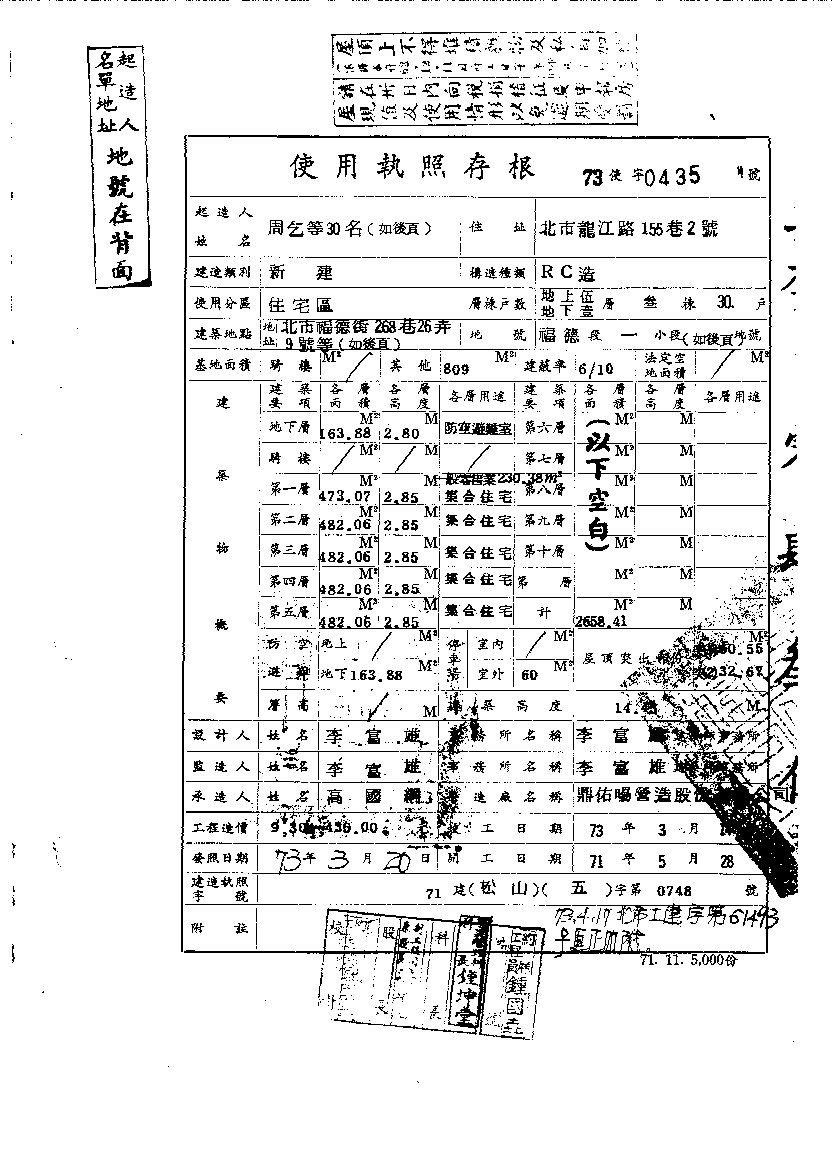 起造人
名單地址
地號在背面
屋頂上不得堆積
使用執照存根 73 使字0435 號
起造人姓名 周乞等30名(如後頁) 住址 北市龍江路155巷2號
建造類別 新建 構造種類 RC造
使用分區 住宅區 層棟戶數 地上伍地下壹層 叁棟 30.戶
建築地點 地址 北市福德街268巷26弄9號等(如後頁) 地號 福德段一小段(如後頁)地號
基地面積 騎樓 M² / 其他 809 M² 建蔽率 6/10 法定空地面積 / M²
建築物概要 建築要項 各層面積 各層高度 各層用途 建築要項 各層面積 各層高度 各層用途
地下層 163.88 M² 2.80 M 防空避難室 第六層 M² M
騎樓 / M² / M / 第七層 M² M
第一層 473.07 M² 2.85 M 230.38m² 集合住宅 第八層 M² M
第二層 482.06 M² 2.85 M 集合住宅 第九層 M² M
第三層 482.06 M² 2.85 M 集合住宅 第十層 M² M
第四層 482.06 M² 2.85 M 集合住宅 第 層 M² M
第五層 482.06 M² 2.85 M 集合住宅 計 2658.41 M² M
(以下空白)
防空避難 地上 / M² 停車場 室內 / M² 屋頂突出 M²
地下 163.88 M² 室外 60 32.67
層高 / M 建築高度 14. M
設計人 姓名 李富雄 事務所名稱 李富雄
監造人 姓名 李富雄 事務所名稱 李富雄
承造人 姓名 高國綱 營造廠名稱 鼎佑暘營造股份 公司
工程造價 竣工日期 73年3月
發照日期 73年3月20日 開工日期 71年5月28
建造執照字號 71建(松山)(五)字第0748號
附註 73.4.17北市工建字第61493
71.11.5,000份
科長
股長
鍾國